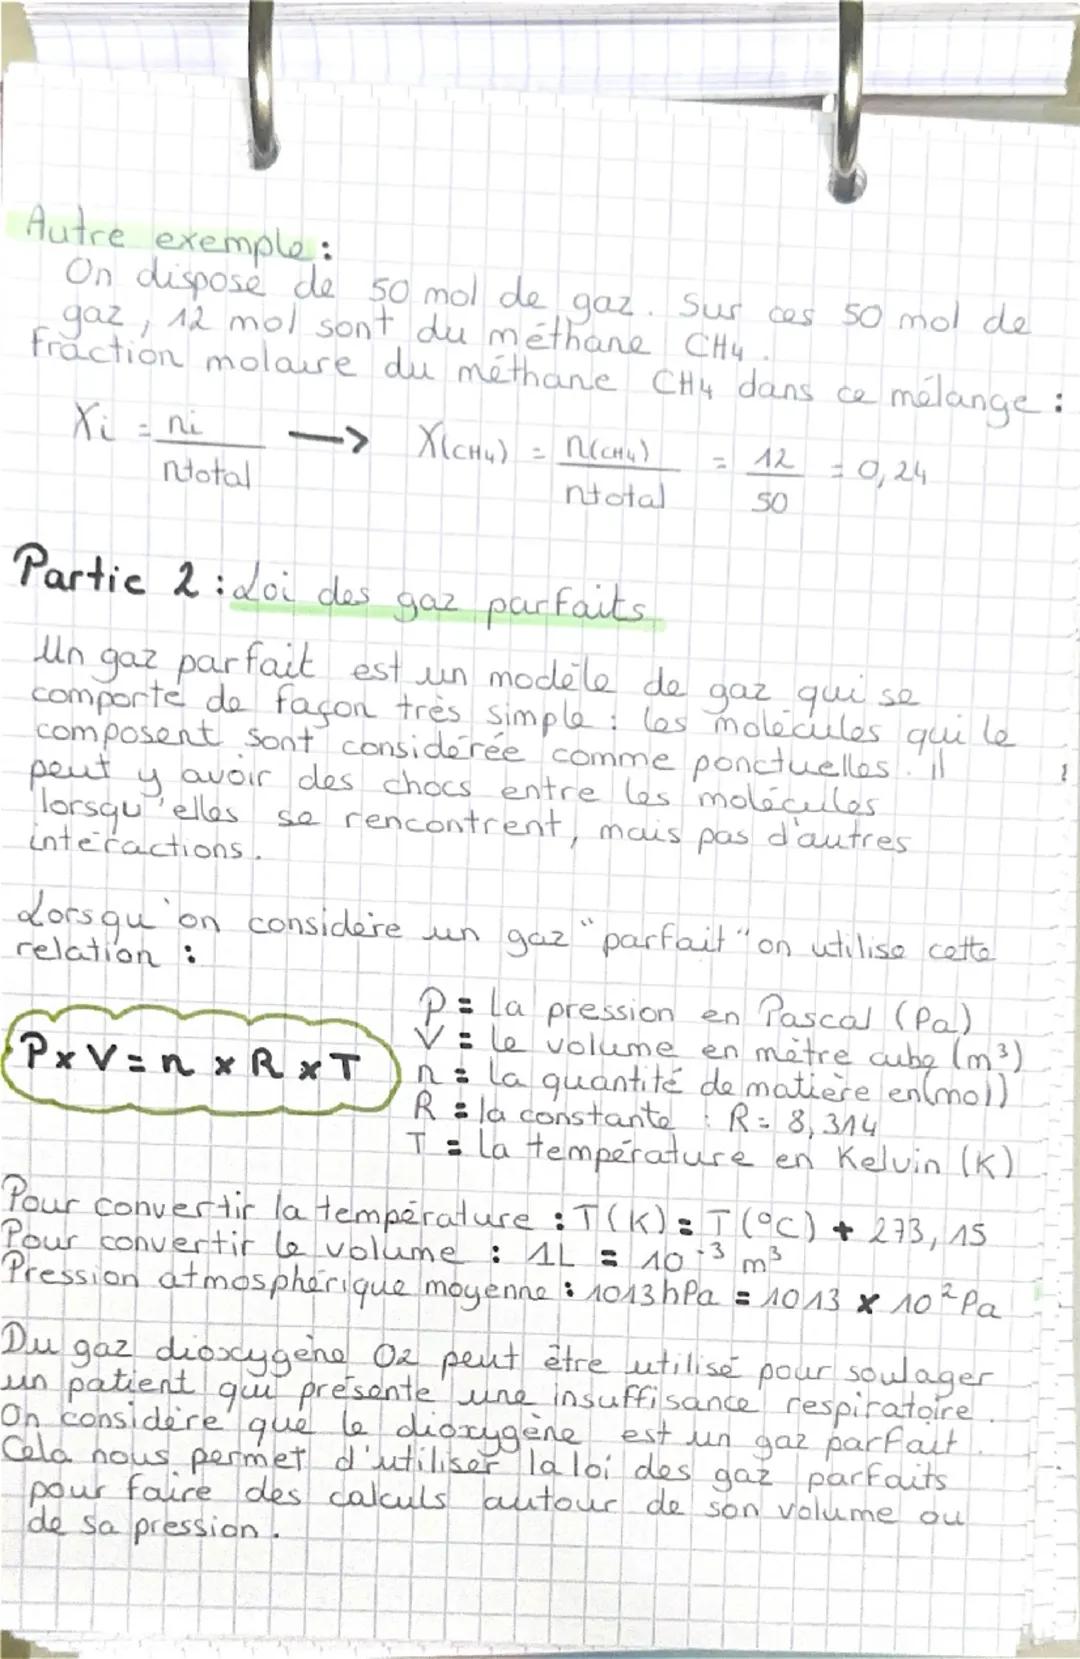 Autre exemple :
On dispose de 50 mol de gaz. Sur ces 50 mol de
gaz, 12 mol sont du méthane CH4.
Fraction molaire du méthane CH4 dans ce mélange :
Xi = ni / ntotal —> X(CH4) = n(CH4) / ntotal = 12 / 50 = 0,24
Partie 2 : Loi des gaz parfaits
Un gaz parfait est un modèle de gaz qui se
comporte de façon très simple : les molécules qui le
composent sont considérée comme ponctuelles. il
peut y avoir des chocs entre les molécules
lorsqu'elles se rencontrent, mais pas d'autres
intéractions.
Lorsqu'on considère un gaz "parfait" on utilise cette
relation :
P x V = n x R x T
P = La pression en Pascal (Pa)
V = le volume en mètre cube (m³)
n = la quantité de matière en (mol)
R = la constante : R = 8,314
T = la température en Kelvin (K)
Pour convertir la température : T(K) = T(°C) + 273,15
Pour convertir le volume : 1L = 10⁻³ m³
Pression atmosphérique moyenne : 1013hPa = 1013 x 10² Pa
Du gaz dioxygène O2 peut être utilisé pour soulager
un patient qui présente une insuffisance respiratoire.
On considère que le dioxygène est un gaz parfait.
Cela nous permet d'utiliser la loi des gaz parfaits
pour faire des calculs autour de son volume ou
de sa pression.